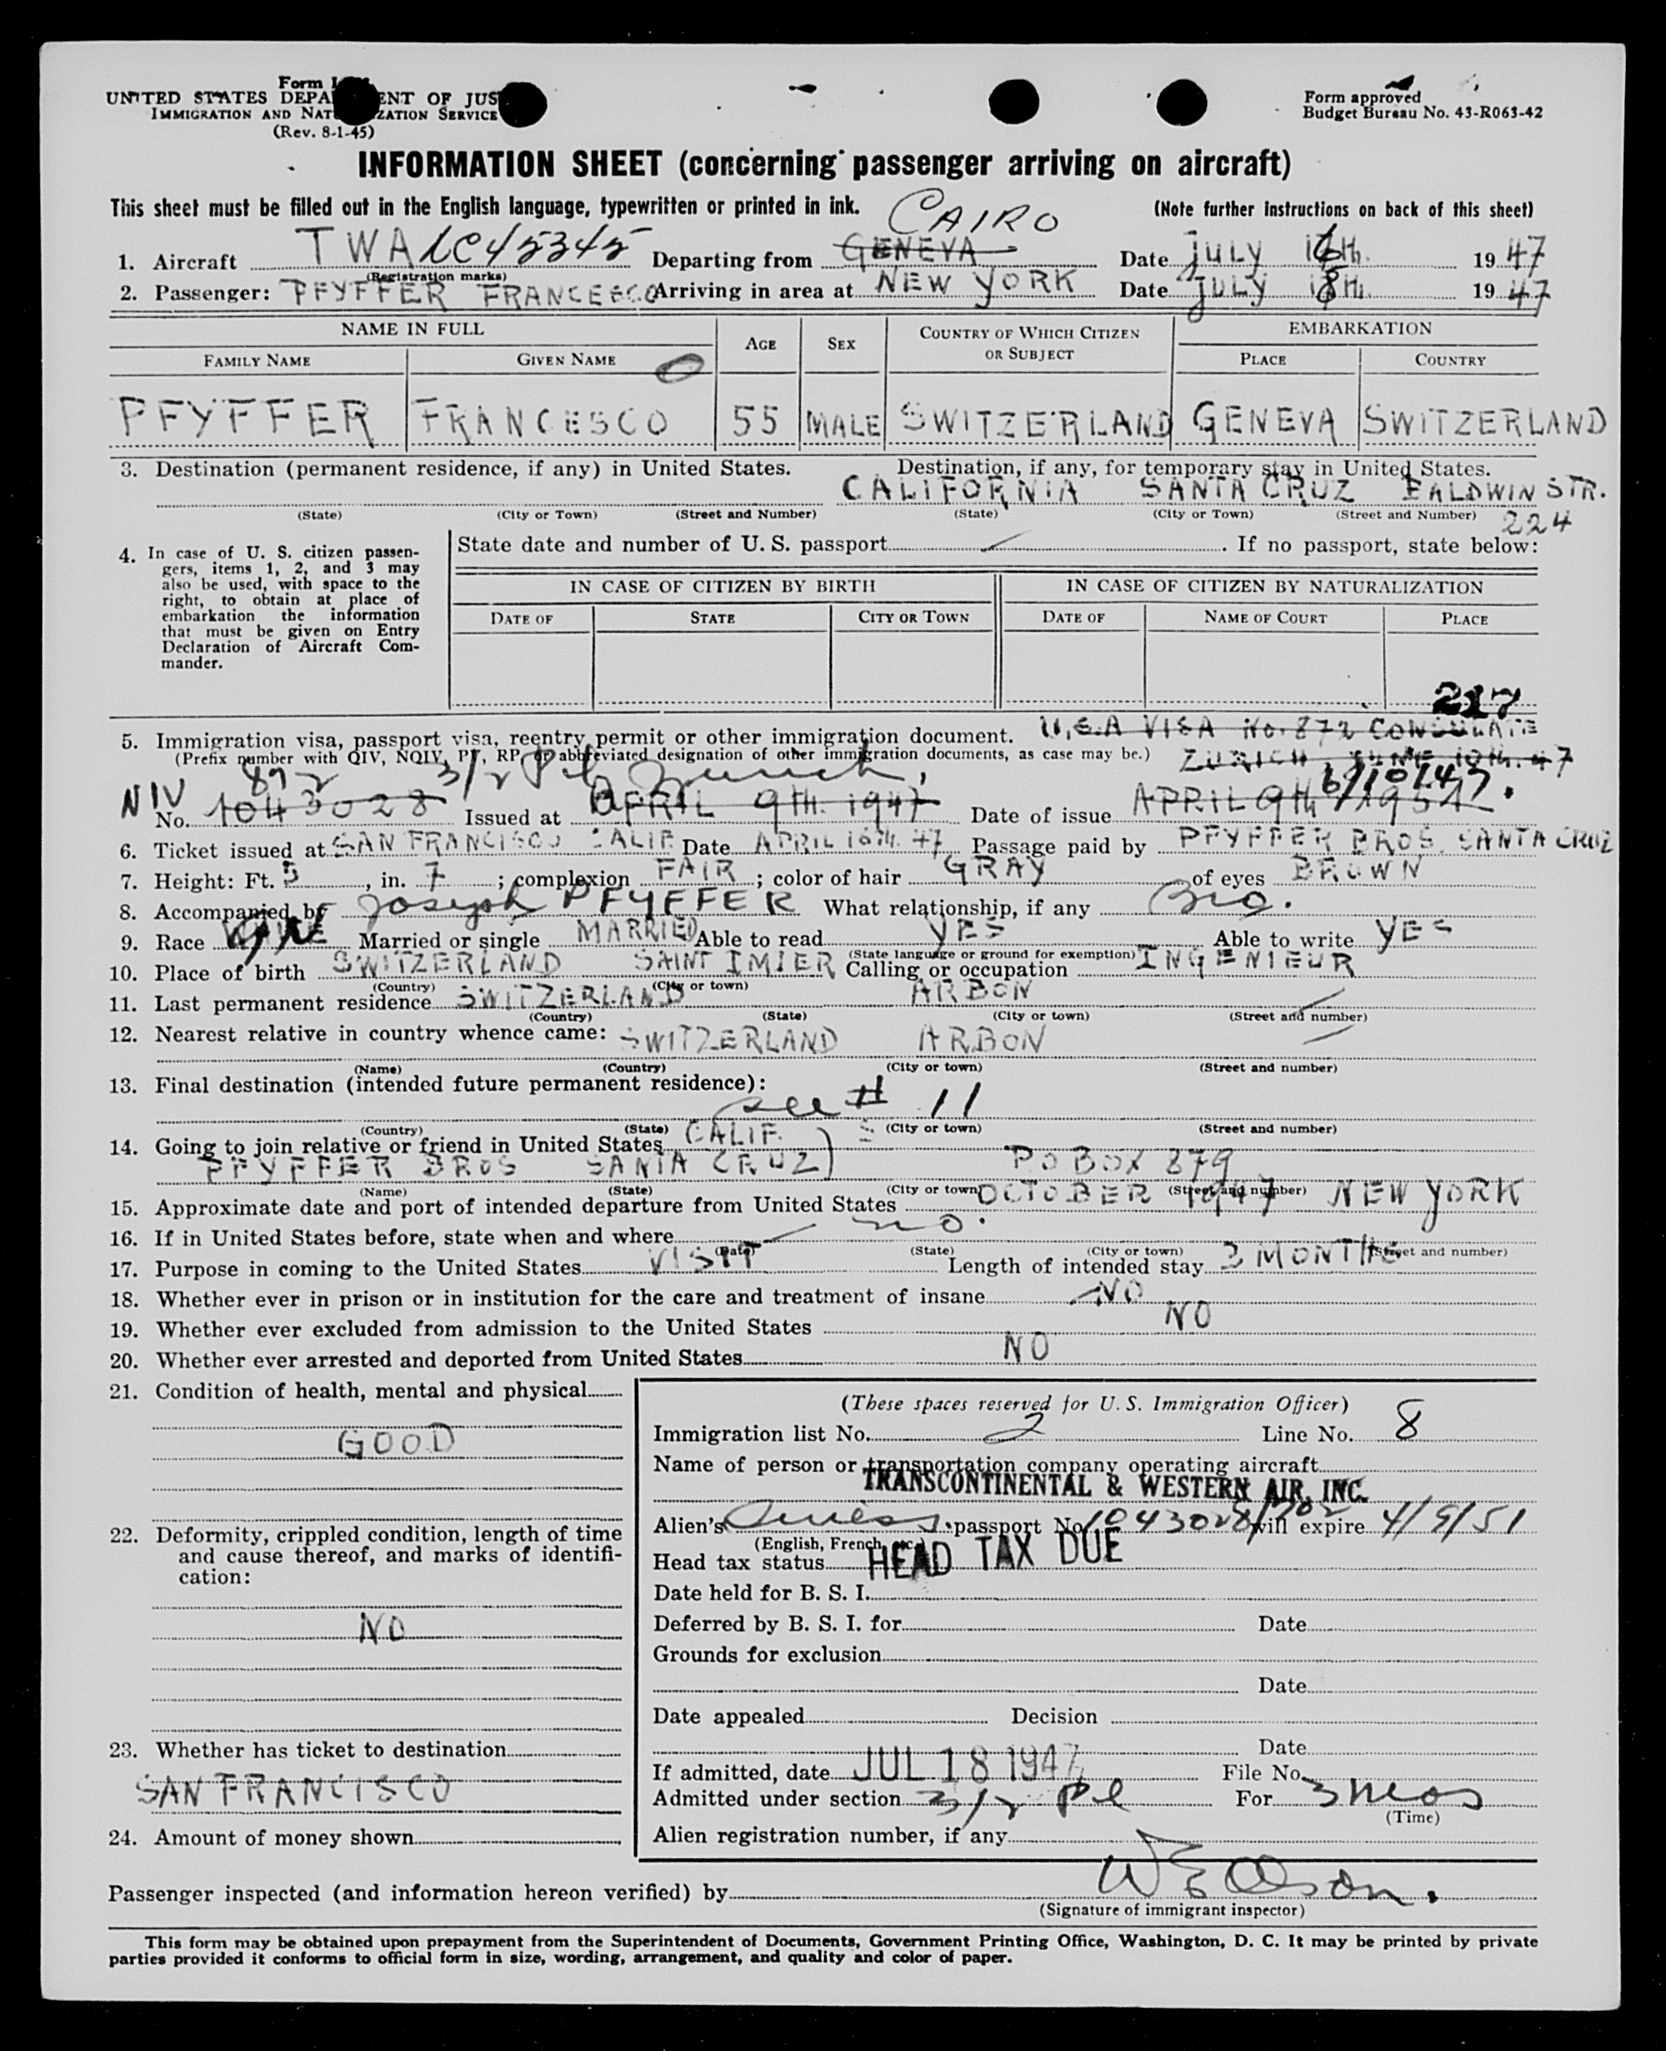 Form I
UNITED STATES DEPA ENT OF JUS
IMMIGRATION AND NAT ZATION SERVICE
(Rev. 8-1-45)
Form approved
Budget Bureau No. 43-R063-42
INFORMATION SHEET (concerning passenger arriving on aircraft)
This sheet must be filled out in the English language, typewritten or printed in ink. (Note further instructions on back of this sheet)
CAIRO
1. Aircraft TWA LC45345 Departing from GENEVA Date JULY 16th. 1947
(Registration marks)
2. Passenger: PFYFFER FRANCESCO Arriving in area at NEW YORK Date JULY 18th. 1947
NAME IN FULL AGE SEX COUNTRY OF WHICH CITIZEN OR SUBJECT EMBARKATION
FAMILY NAME GIVEN NAME PLACE COUNTRY
PFYFFER FRANCESCO 55 MALE SWITZERLAND GENEVA SWITZERLAND
3. Destination (permanent residence, if any) in United States. Destination, if any, for temporary stay in United States.
CALIFORNIA SANTA CRUZ BALDWIN STR.
(State) (City or Town) (Street and Number) (State) (City or Town) (Street and Number) 224
4. In case of U. S. citizen passen-
gers, items 1, 2, and 3 may
also be used, with space to the
right, to obtain at place of
embarkation the information
that must be given on Entry
Declaration of Aircraft Com-
mander.
State date and number of U. S. passport . If no passport, state below:
IN CASE OF CITIZEN BY BIRTH IN CASE OF CITIZEN BY NATURALIZATION
DATE OF STATE CITY OR TOWN DATE OF NAME OF COURT PLACE
217
5. Immigration visa, passport visa, reentry permit or other immigration document. U.S.A VISA No. 872 CONSULATE
(Prefix number with QIV, NQIV, PV, RP, or abbreviated designation of other immigration documents, as case may be.) ZURICH, JUNE 10th. 47
NIV 872 3/2 Pl Zurich, 6/10/47.
No. 1043028 Issued at APRIL 9th. 1947 Date of issue APRIL 9th 1951
6. Ticket issued at SAN FRANCISCO CALIF. Date APRIL 16th. 47 Passage paid by PFYFFER BROS. SANTA CRUZ
7. Height: Ft. 5, in. 7; complexion FAIR; color of hair GRAY of eyes BROWN
8. Accompanied by Joseph PFYFFER What relationship, if any Bro.
9. Race Married or single MARRIED Able to read YES Able to write YES
(State language or ground for exemption)
10. Place of birth SWITZERLAND SAINT IMIER Calling or occupation INGENIEUR
(Country) (City or town)
11. Last permanent residence SWITZERLAND ARBON
(Country) (State) (City or town) (Street and number)
12. Nearest relative in country whence came: SWITZERLAND ARBON
(Name) (Country) (City or town) (Street and number)
13. Final destination (intended future permanent residence):
see # 11
(Country) (State) (City or town) (Street and number)
14. Going to join relative or friend in United States CALIF.
PFYFFER BROS SANTA CRUZ) PO BOX 879
(Name) (State) (City or town) (Street and number)
15. Approximate date and port of intended departure from United States OCTOBER 1947 NEW YORK
16. If in United States before, state when and where no.
(Date) (State) (City or town) (Street and number)
17. Purpose in coming to the United States VISIT Length of intended stay 3 MONTHS
18. Whether ever in prison or in institution for the care and treatment of insane NO
19. Whether ever excluded from admission to the United States NO
20. Whether ever arrested and deported from United States NO
21. Condition of health, mental and physical
GOOD
22. Deformity, crippled condition, length of time
and cause thereof, and marks of identifi-
cation:
NO
23. Whether has ticket to destination
SAN FRANCISCO
24. Amount of money shown
(These spaces reserved for U. S. Immigration Officer)
Immigration list No. 2 Line No. 8
Name of person or transportation company operating aircraft
TRANSCONTINENTAL & WESTERN AIR, INC.
Alien's Swiss passport No. 1043028/702 will expire 4/9/51
(English, French, etc.)
Head tax status HEAD TAX DUE
Date held for B. S. I.
Deferred by B. S. I. for Date
Grounds for exclusion
Date
Date appealed Decision
Date
If admitted, date JUL 18 1947 File No.
Admitted under section 3/2 Pl For 3 mos
(Time)
Alien registration number, if any
Passenger inspected (and information hereon verified) by W E Olson.
(Signature of immigrant inspector)
This form may be obtained upon prepayment from the Superintendent of Documents, Government Printing Office, Washington, D. C. It may be printed by private
parties provided it conforms to official form in size, wording, arrangement, and quality and color of paper.